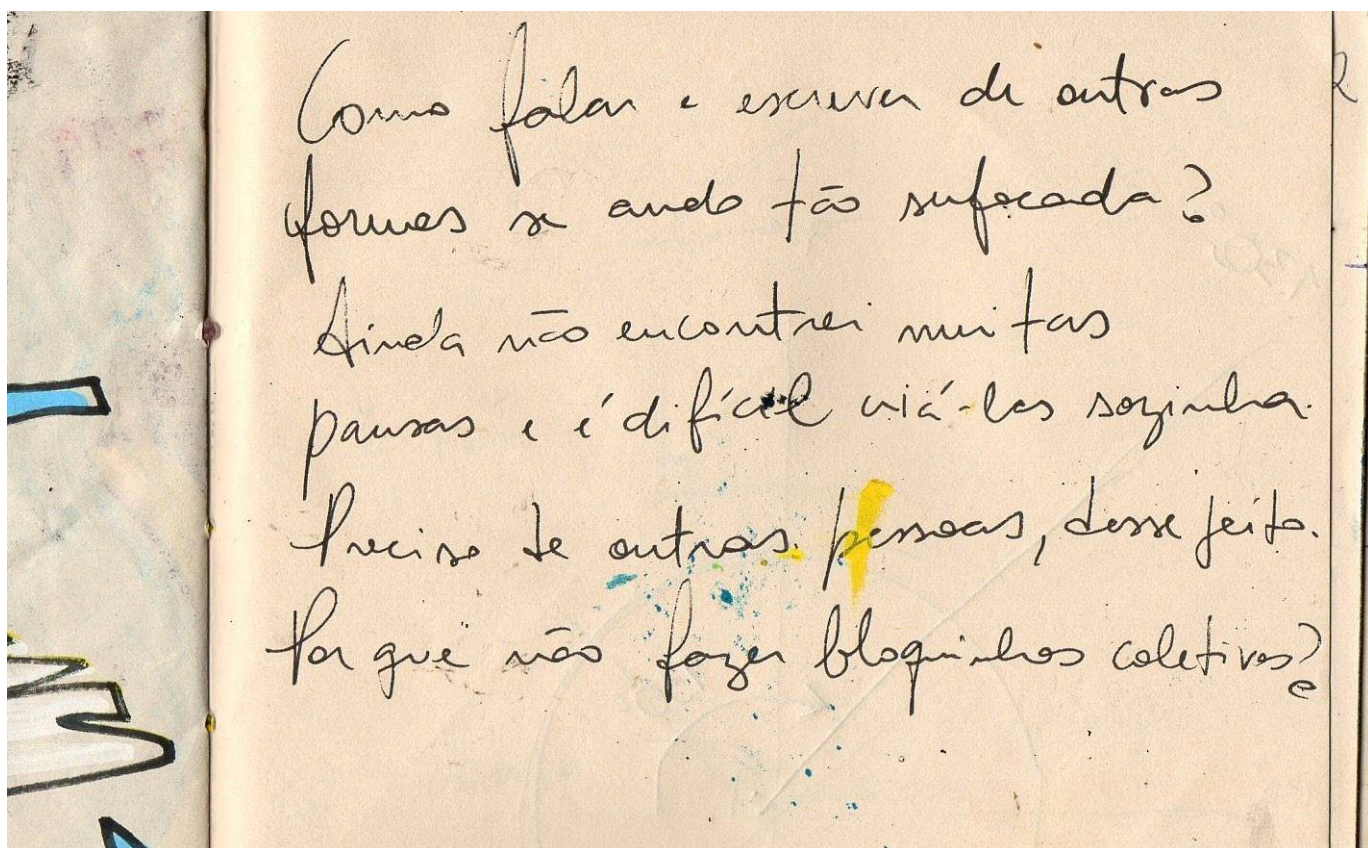 Como falar e escrever de outras
formas se ando tão sufocada?
Ainda não encontrei muitas
pausas e é difícil criá-las sozinha.
Preciso de outras pessoas, desse jeito.
Por que não fazer bloquinhos coletivos?